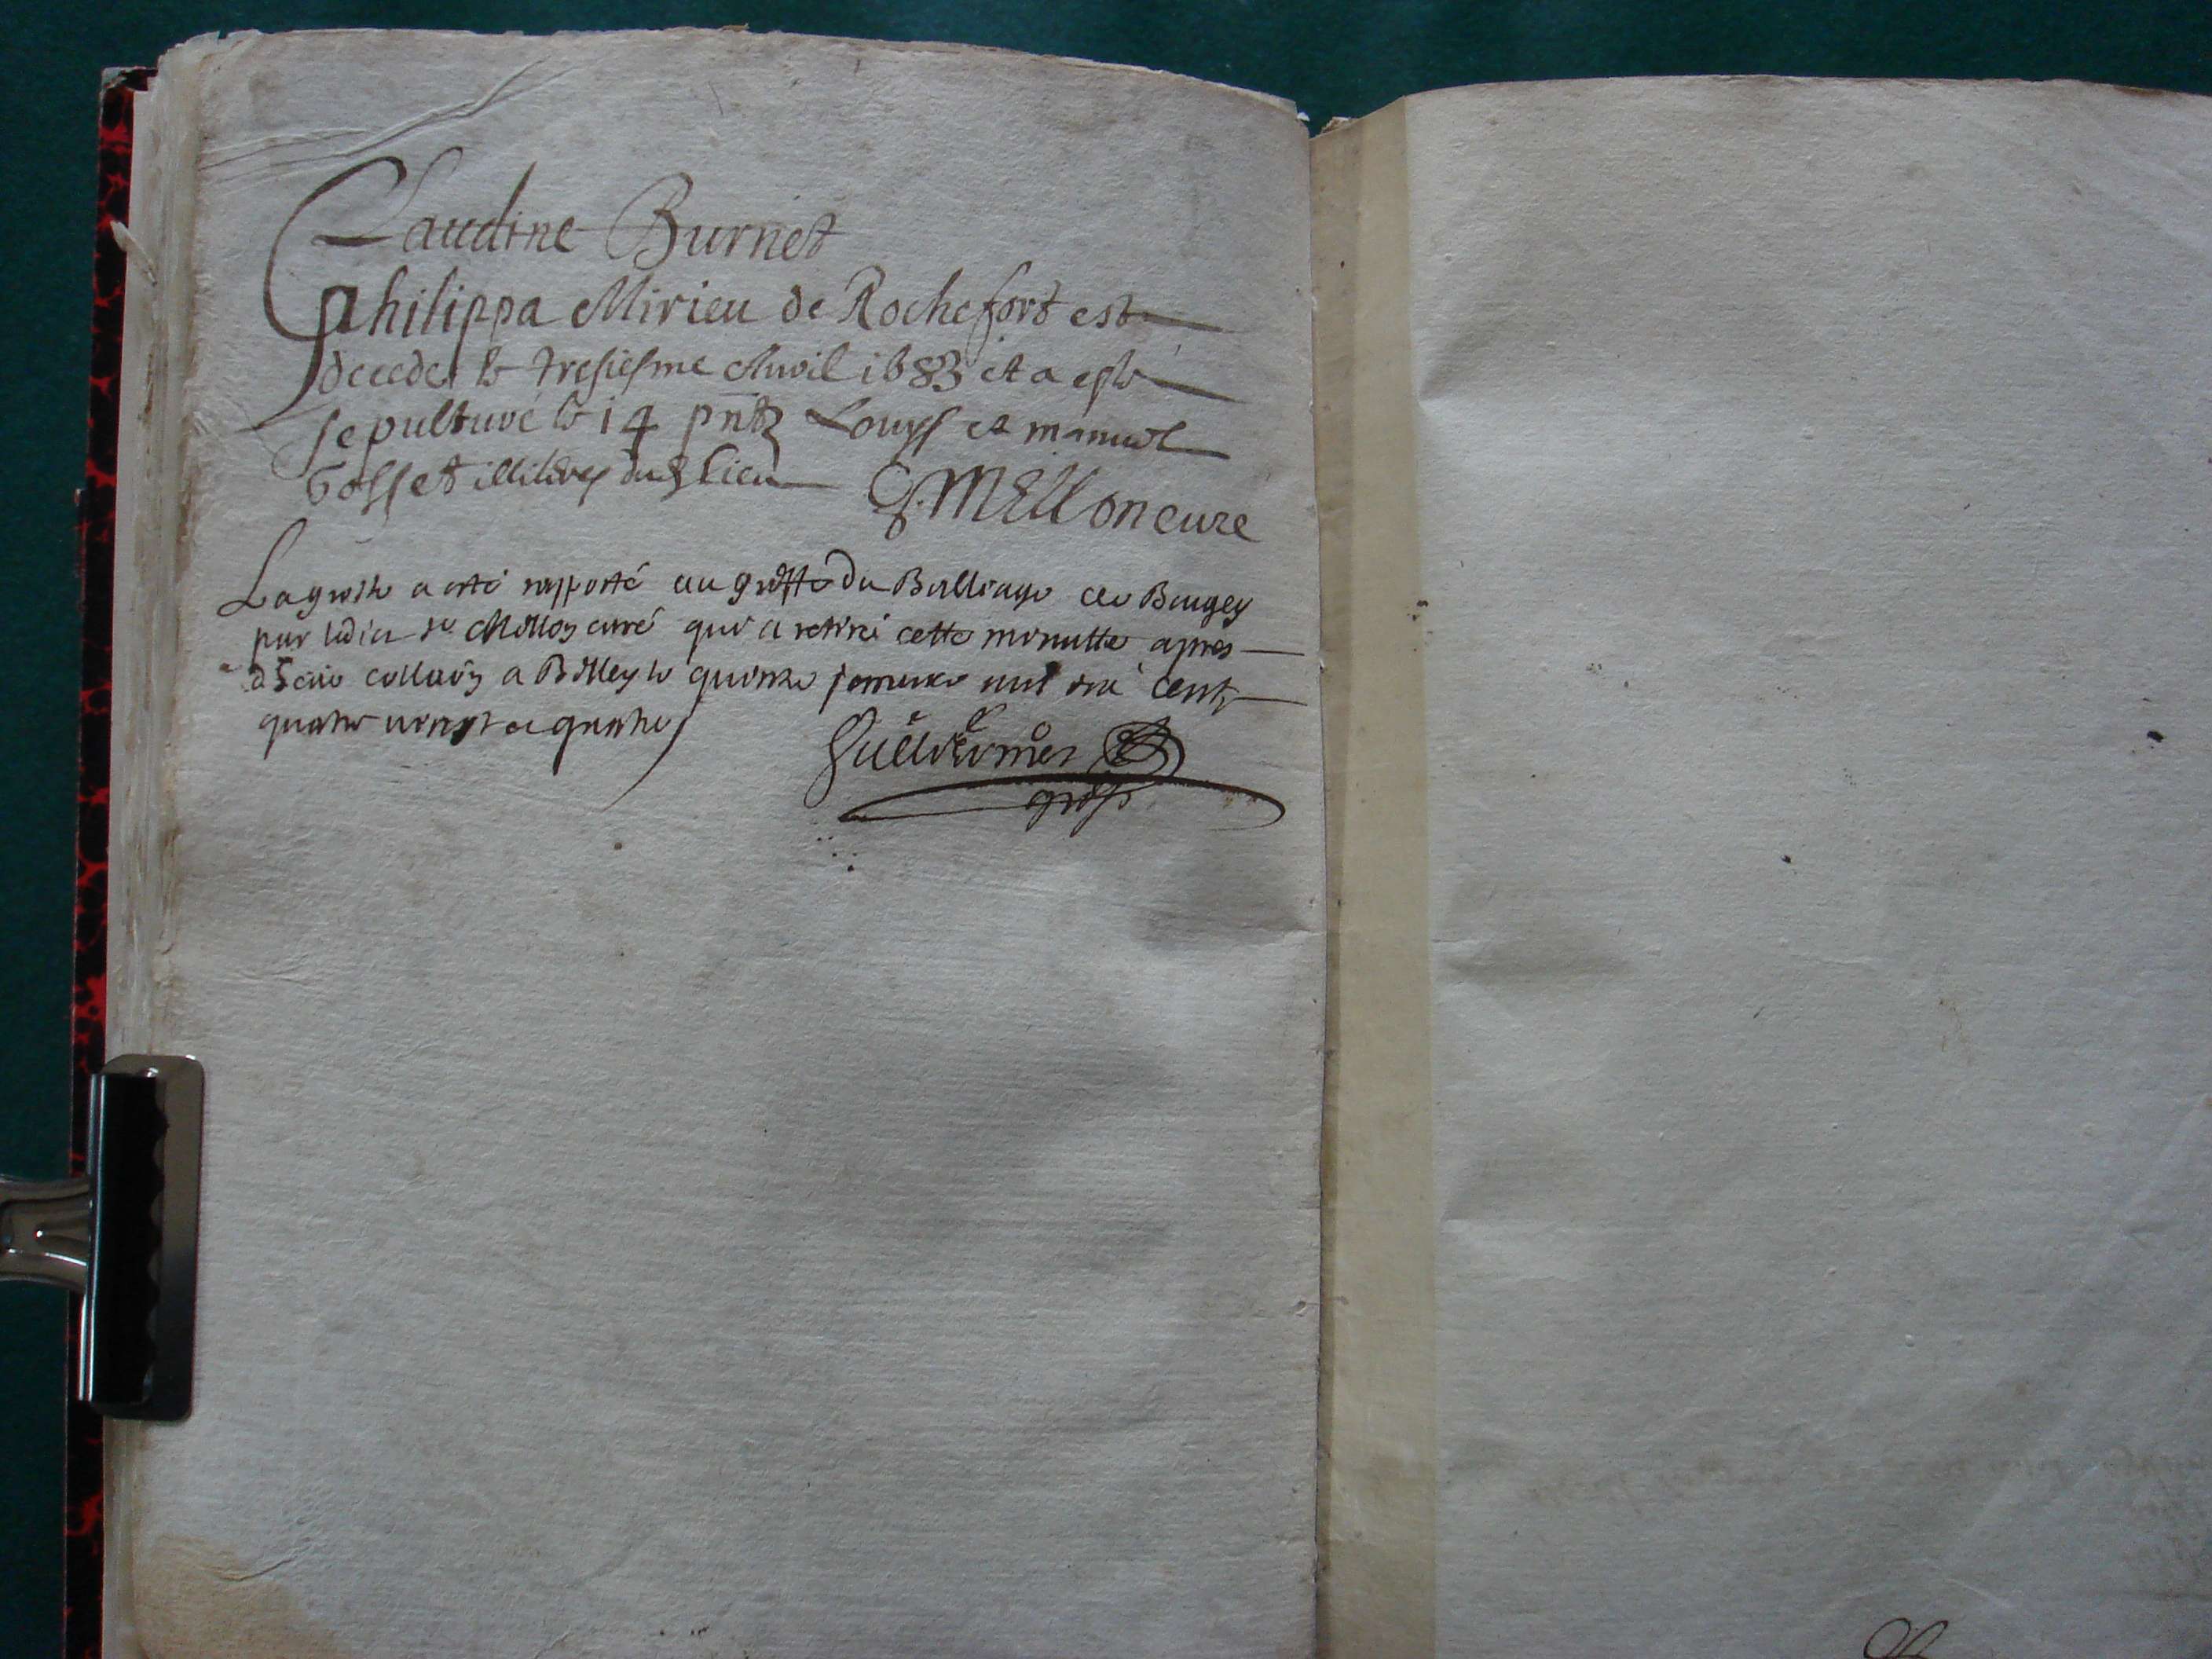 Claudine Burnet
philippa Mirieu de Rochefort est
decedes le tresiesme Auvil 1683 et a esté
sepulturé le 14 pntz Louys et manuel
Gosset illiteres dud lieu G. MEllon cure
La grosse a esté rapporté au greffe du Balliage de Beugey
par ledict sr Mellon curé qui a retiré cette minutte apres
collaōn a Belley le quinze janvier mil six cent
quatre vingt et quatre
greff